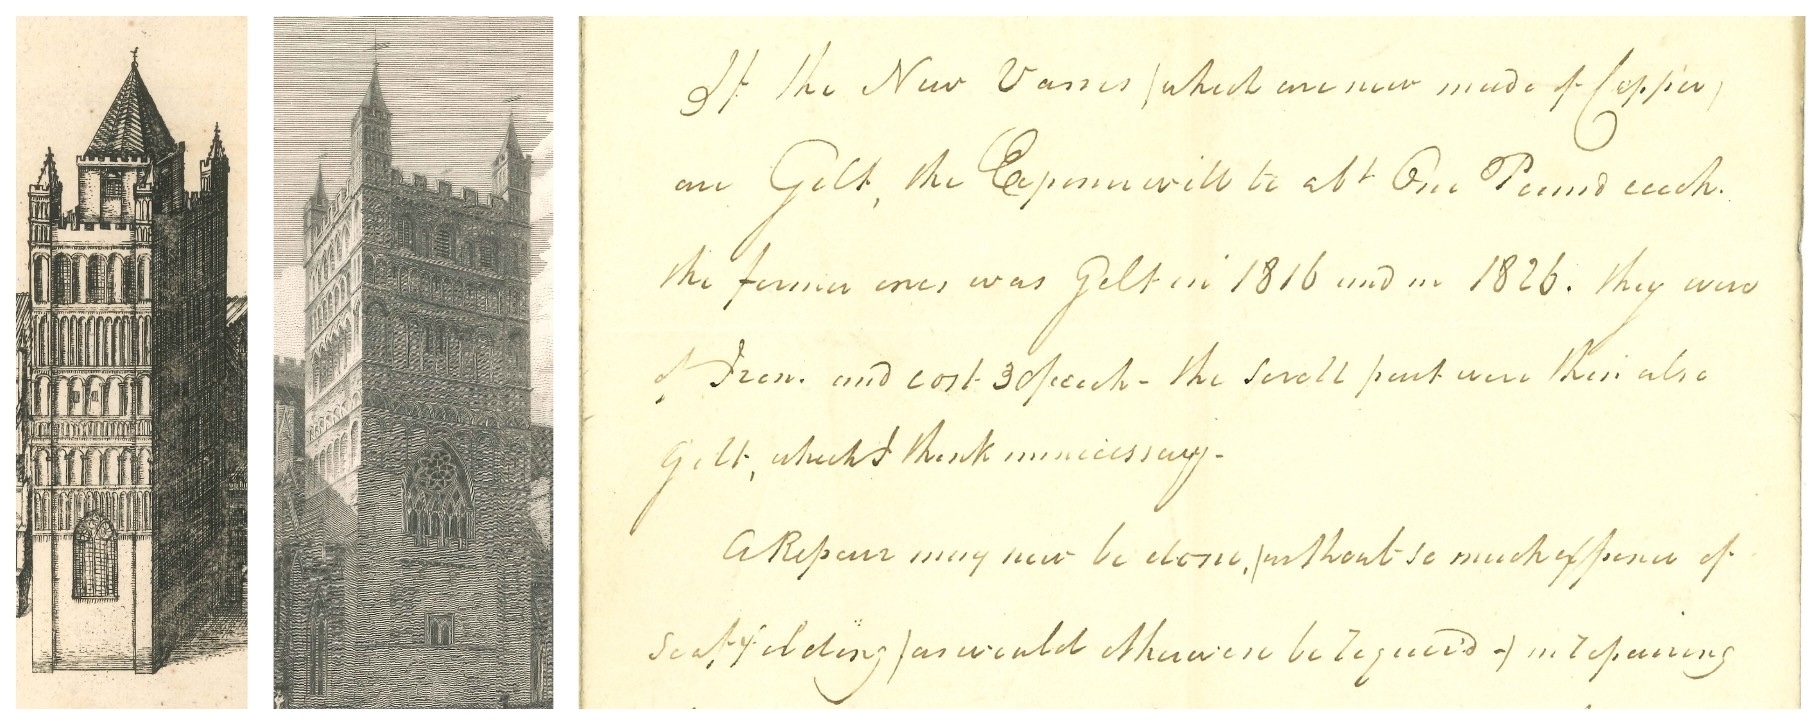 If the New Vanes (which are now made of Copper)
are Gelt, the Expence will be abt One Pound each.
the former ones was Gelt in 1816 and in 1826. they were
of Iron. and cost 30/ each - the scroll part were then also
Gelt, which I think unnicessary -
A Repair may now be done, (without so much expence of
Scaffolding) as would otherwise be requir'd -) in repairing